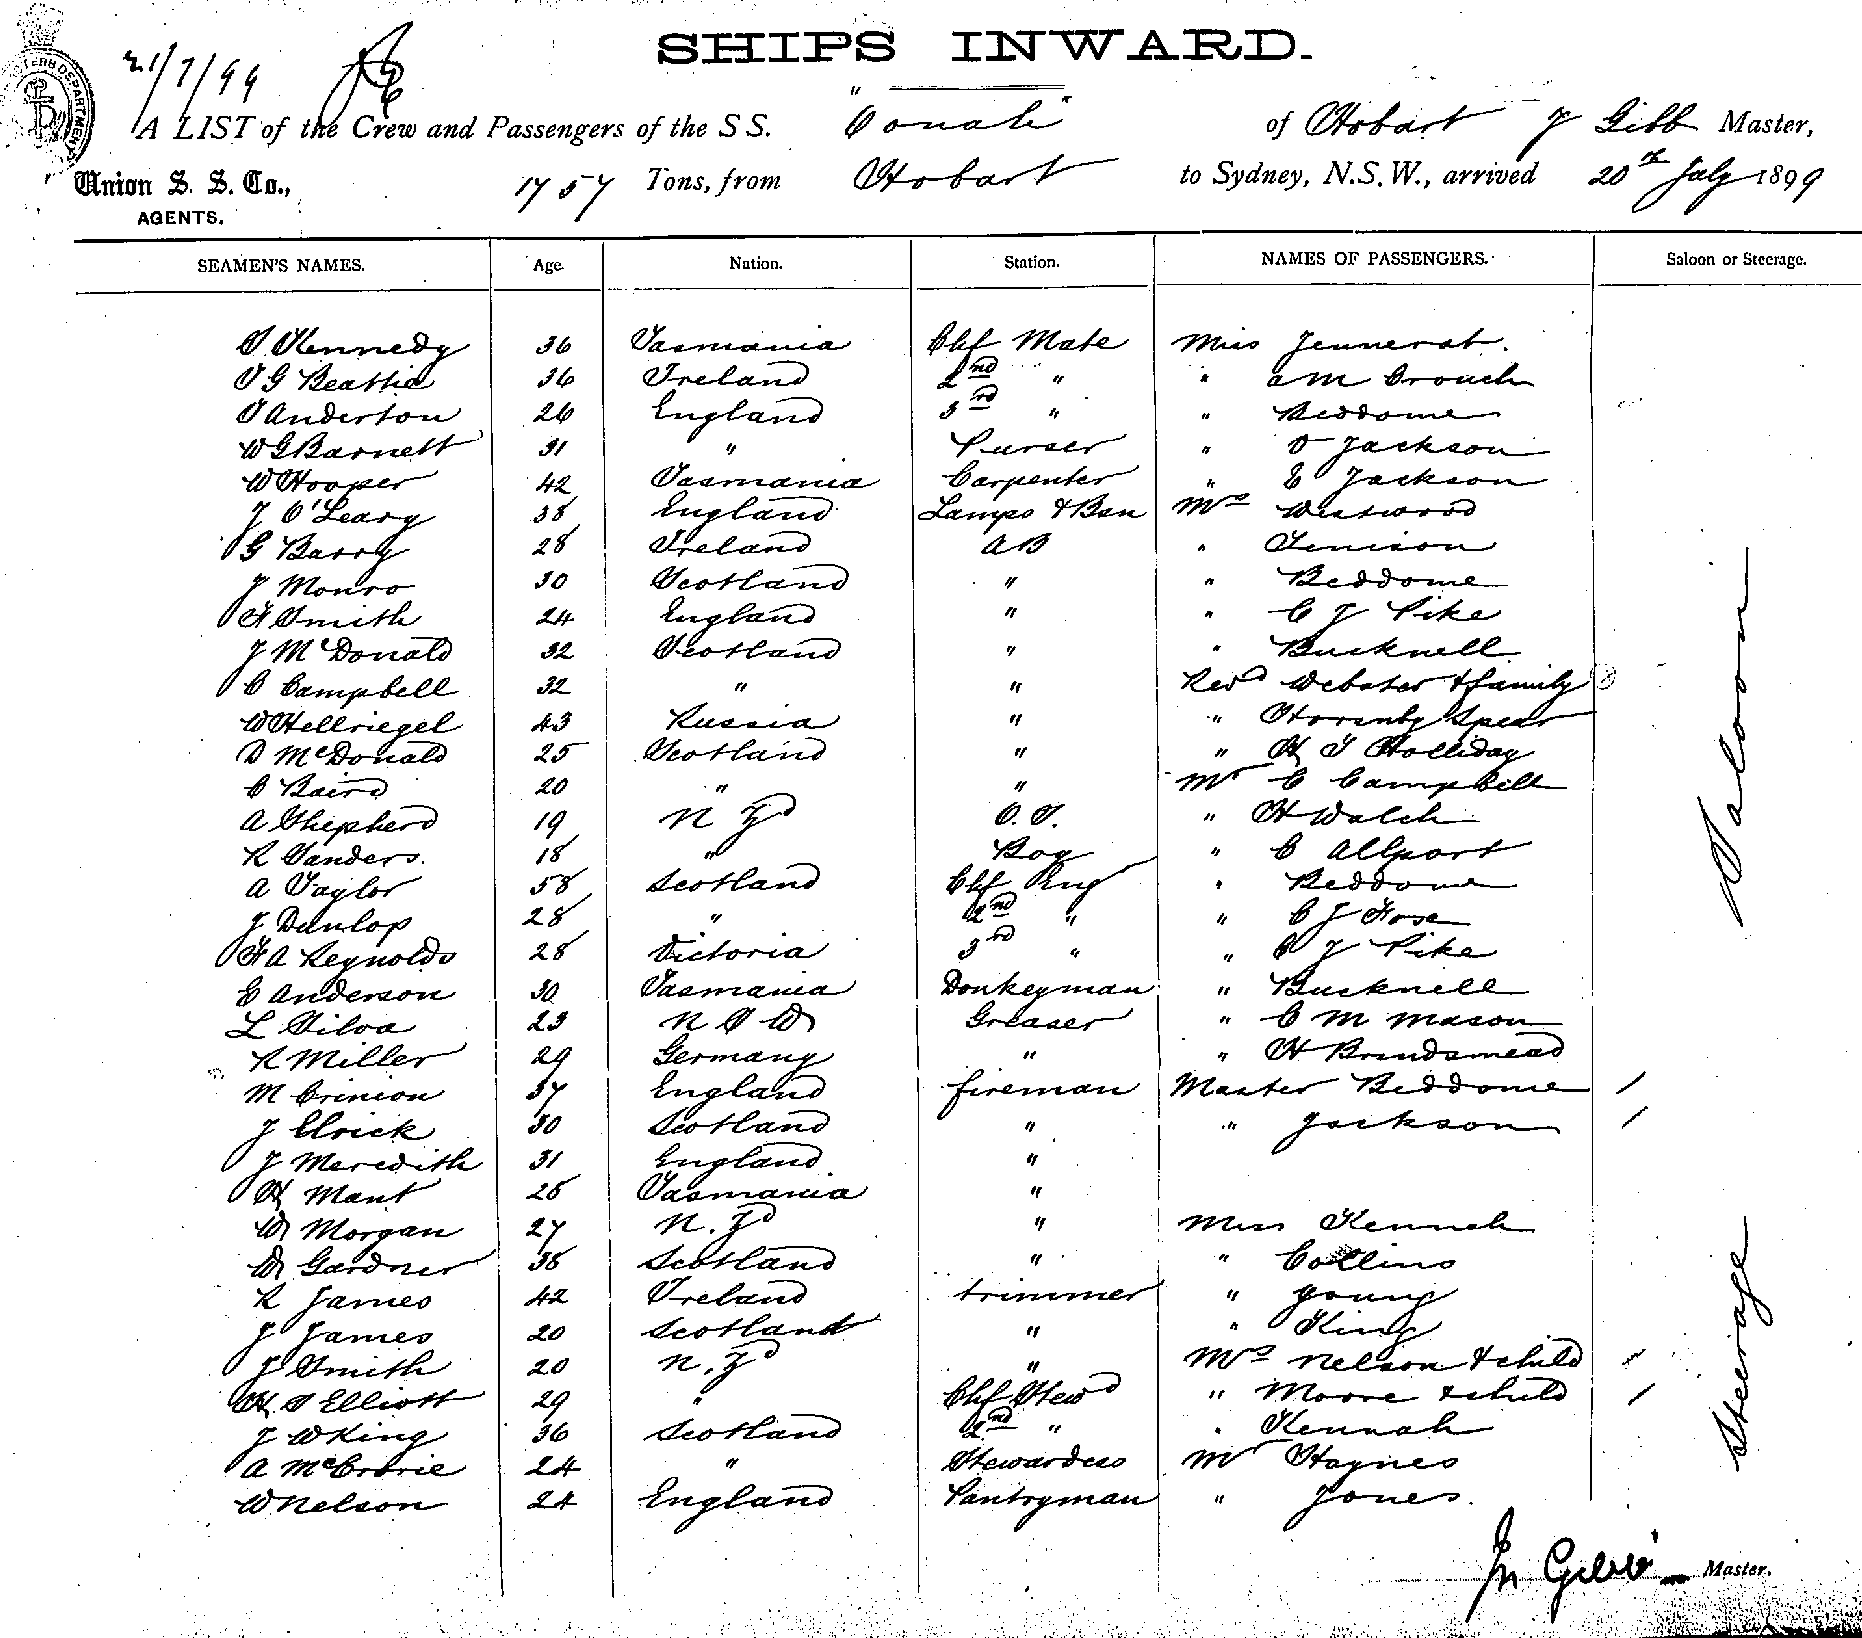 SHIPS INWARD.
21/7/99
A LIST of the Crew and Passengers of the S S. "Oonah" of Hobart J Gibb Master,
Union S. S. Co., AGENTS. 1757 Tons, from Hobart to Sydney, N.S.W., arrived 20th July 1899
SEAMEN'S NAMES. Age. Nation. Station. NAMES OF PASSENGERS. Saloon or Steerage.
S Kennedy 36 Tasmania Chf Mate Miss Jennerat.
J G Beattie 36 Ireland 2nd " " A M Crouch
J Anderton 26 England 3rd " " Beddome
W G Barnett 31 " Purser " O Jackson
W Hooper 42 Tasmania Carpenter " E Jackson
J O'Leary 38 England Lamps & Bsn Mrs Westwood
G Barry 28 Ireland A B " Tenison
J Monro 30 Scotland " " Beddome
F Smith 24 England " " C J Pike
J McDonald 32 Scotland " " Bucknell
C Campbell 32 " " Revd Webster & family
W Hellriegel 43 Russia " " Hornby Spear
D McDonald 25 Scotland " " H T Holliday
C Baird 20 " " Mr C Campbell
A Shepherd 19 N Zd O.S. " H Walch
R Sanders. 18 " Boy " C Allport
A Taylor 58 Scotland Chf Eng " Beddome
J Dunlop 28 " 2nd " " C J
F A Reynolds 28 Victoria 3rd " " C J Pike
E Anderson 30 Tasmania Donkeyman " Bucknell
L Silva 23 N S W Greaser " C M Mason
R Miller 29 Germany " " H Brindsmead
M Crinion 37 England fireman Master Beddome /
J Elrick 30 Scotland " " Jackson /
J Meredith 31 England "
H Mant 28 Tasmania "
W Morgan 27 N. Zd " Miss Kennah
W Gardner 38 Scotland " " Collins
R James 42 Ireland trimmer " Young
J James 20 Scotland " " King
J Smith 20 N. Zd " Mrs Nelson & child /
H S Elliott 29 " Chf Stewd " Moore & child /
J W King 36 Scotland 2nd " " Kennah
A McCrorie 24 " Stewardess Mr Haynes
W Nelson 24 England Pantryman " Jones.
Saloon
Steerage
Jn Gibb Master.